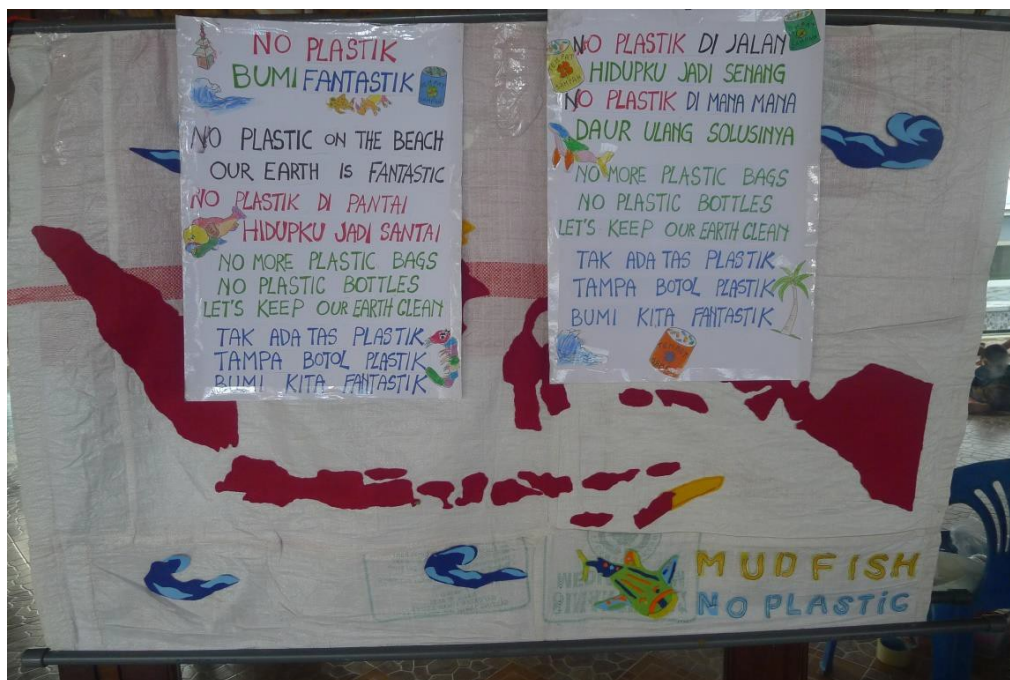 NO PLASTIK
BUMI FANTASTIK
NO PLASTIC ON THE BEACH
OUR EARTH IS FANTASTIC
NO PLASTIK DI PANTAI
HIDUPKU JADI SANTAI
NO MORE PLASTIC BAGS
NO PLASTIC BOTTLES
LET'S KEEP OUR EARTH CLEAN
TAK ADA TAS PLASTIK
TAMPA BOTOL PLASTIK
BUMI KITA FANTASTIK
NO PLASTIK DI JALAN
HIDUPKU JADI SENANG
NO PLASTIK DI MANA MANA
DAUR ULANG SOLUSINYA
NO MORE PLASTIC BAGS
NO PLASTIC BOTTLES
LET'S KEEP OUR EARTH CLEAN
TAK ADA TAS PLASTIK
TAMPA BOTOL PLASTIK
BUMI KITA FANTASTIK
MUDFISH
NO PLASTIC